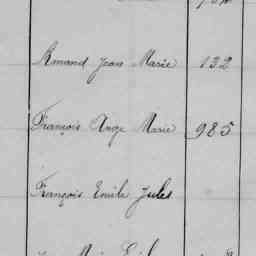 Amand Jean Marie 132
François Ange Marie 985
François Emile Jules